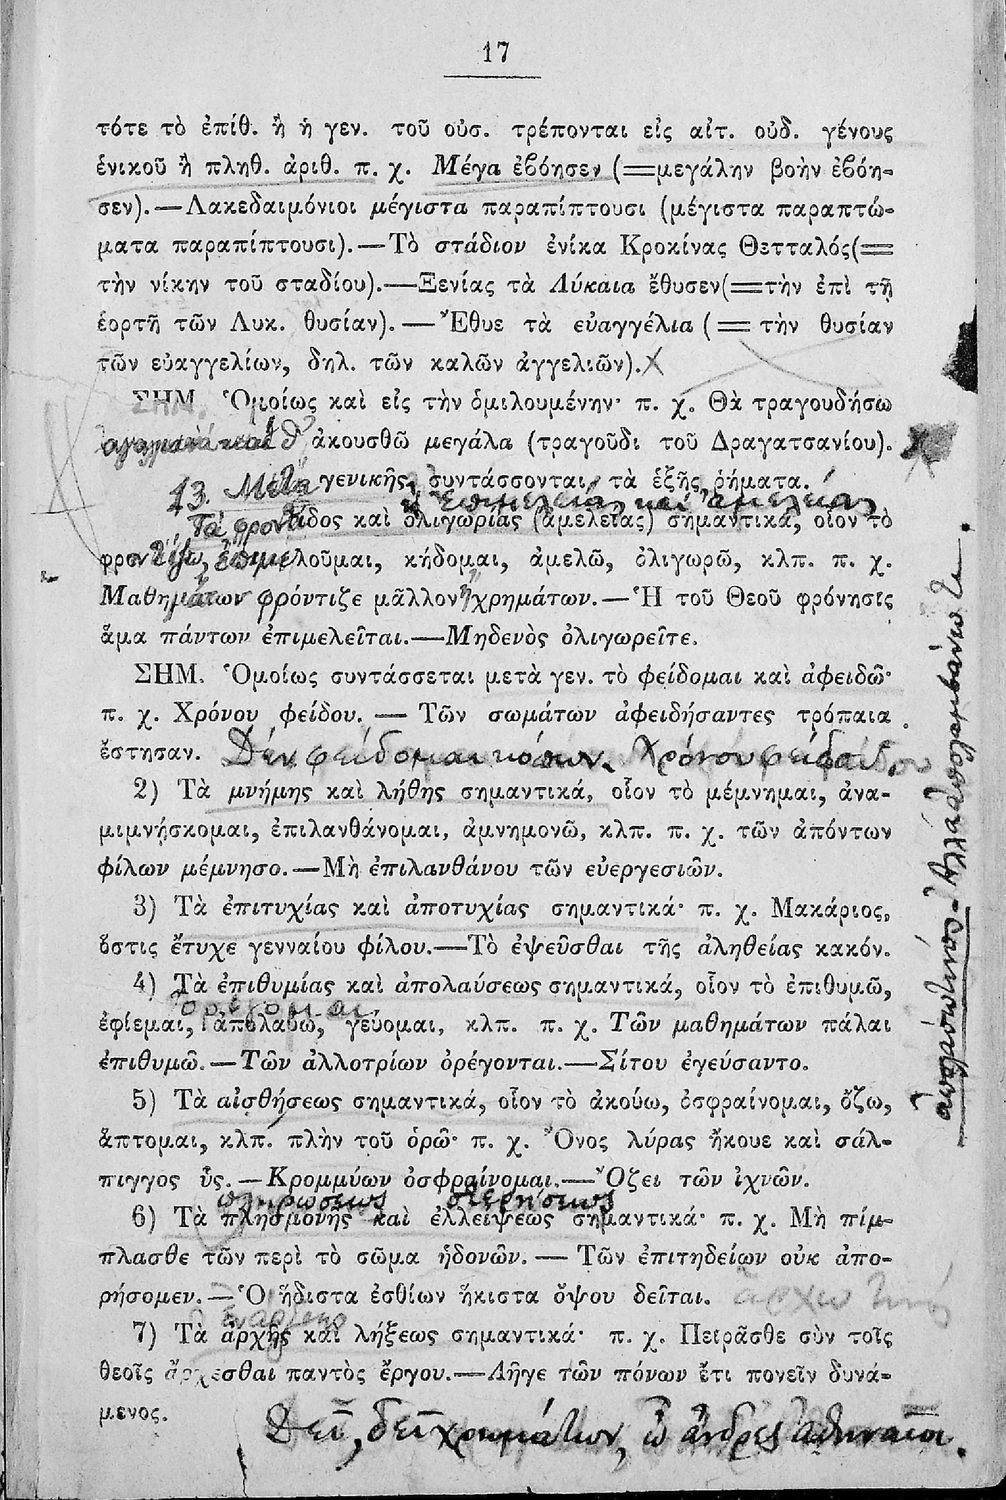 17
τότε τὸ ἐπίθ. ἢ ἡ γεν. τοῦ οὐσ. τρέπονται εἰς αἰτ. οὐδ. γένους
ἑνικοῦ ἢ πληθ. ἀριθ. π. χ. Μέγα ἐβόησεν (=μεγάλην βοὴν ἐβόη-
σεν).—Λακεδαιμόνιοι μέγιστα παραπίπτουσι (μέγιστα παραπτώ-
ματα παραπίπτουσι).—Τὸ στάδιον ἐνίκα Κροκίνας Θετταλός(=
τὴν νίκην τοῦ σταδίου).—Ξενίας τὰ Λύκαια ἔθυσεν(=τὴν ἐπὶ τῇ
ἑορτῇ τῶν Λυκ. θυσίαν).—Ἔθυε τὰ εὐαγγέλια (=τὴν θυσίαν
τῶν εὐαγγελίων, δηλ. τῶν καλῶν ἀγγελιῶν).
ΣΗΜ. Ὁμοίως καὶ εἰς τὴν ὁμιλουμένην· π. χ. Θὰ τραγουδήσω
θ' ἀκουσθῶ μεγάλα (τραγοῦδι τοῦ Δραγατσανίου).
13. Μετὰ γενικῆς συντάσσονται τὰ ἑξῆς ῥήματα.
ἐπιμελείας καὶ ἀμελείας
Τὰ φροντίδος καὶ ὀλιγωρίας (ἀμελείας) σημαντικά, οἷον τὸ
φροντίζω, ἐπιμελοῦμαι, κήδομαι, ἀμελῶ, ὀλιγωρῶ, κλπ. π. χ.
Μαθημάτων φρόντιζε μᾶλλον ἢ χρημάτων.—Ἡ τοῦ Θεοῦ φρόνησις
ἅμα πάντων ἐπιμελεῖται.—Μηδενὸς ὀλιγωρεῖτε.
ΣΗΜ. Ὁμοίως συντάσσεται μετὰ γεν. τὸ φείδομαι καὶ ἀφειδῶ·
π. χ. Χρόνου φείδου. — Τῶν σωμάτων ἀφειδήσαντες τρόπαια
ἔστησαν. Δέν φείδομαι κόπων. Χρόνου φείδου
2) Τὰ μνήμης καὶ λήθης σημαντικά, οἷον τὸ μέμνημαι, ἀνα-
μιμνήσκομαι, ἐπιλανθάνομαι, ἀμνημονῶ, κλπ. π. χ. τῶν ἀπόντων
φίλων μέμνησο.—Μὴ ἐπιλανθάνου τῶν εὐεργεσιῶν.
3) Τὰ ἐπιτυχίας καὶ ἀποτυχίας σημαντικά· π. χ. Μακάριος,
ὅστις ἔτυχε γενναίου φίλου.—Τὸ ἐψεῦσθαι τῆς ἀληθείας κακόν.
4) Τὰ ἐπιθυμίας καὶ ἀπολαύσεως σημαντικά, οἷον τὸ ἐπιθυμῶ,
ὀρέγομαι
ἐφίεμαι, ἀπολαύω, γεύομαι, κλπ. π. χ. Τῶν μαθημάτων πάλαι
ἐπιθυμῶ.—Τῶν ἀλλοτρίων ὀρέγονται.—Σίτου ἐγεύσαντο.
5) Τὰ αἰσθήσεως σημαντικά, οἷον τὸ ἀκούω, ὀσφραίνομαι, ὄζω,
ἅπτομαι, κλπ. πλὴν τοῦ ὁρῶ· π. χ. Ὄνος λύρας ἤκουε καὶ σάλ-
πιγγος ὗς.—Κρομμύων ὀσφραίνομαι.—Ὄζει τῶν ἰχνῶν.
πληρώσεως στερήσεως
6) Τὰ πλησμονῆς καὶ ἐλλείψεως σημαντικά· π. χ. Μὴ πίμ-
πλασθε τῶν περὶ τὸ σῶμα ἡδονῶν. — Τῶν ἐπιτηδείων οὐκ ἀπο-
ρήσομεν.—Ὁ ἥδιστα ἐσθίων ἥκιστα ὄψου δεῖται. ἄρχω τινός
7) Τὰ ἀρχῆς καὶ λήξεως σημαντικά· π. χ. Πειρᾶσθε σὺν τοῖς
θεοῖς ἄρχεσθαι παντὸς ἔργου.—Λῆγε τῶν πόνων ἔτι πονεῖν δυνά-
μενος.
Δεῖ, δεῖ χρημάτων, ὦ ἄνδρες ἀθηναῖοι.
ἀπολαύω τινός - Ἀλλὰ ἀπολαμβάνω τι.